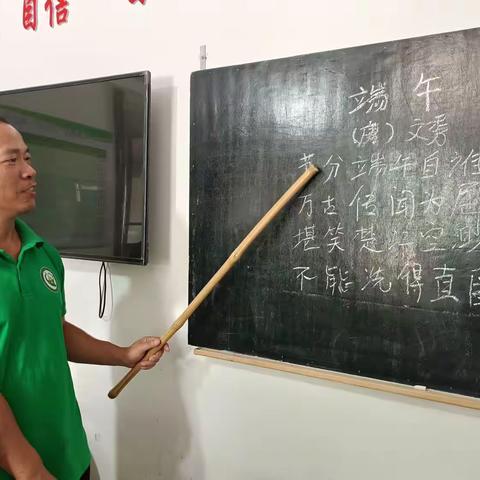 自信
端午
(唐)文秀
节分端午自谁
万古传闻为屈
堪笑楚江空渺
不能洗得直臣